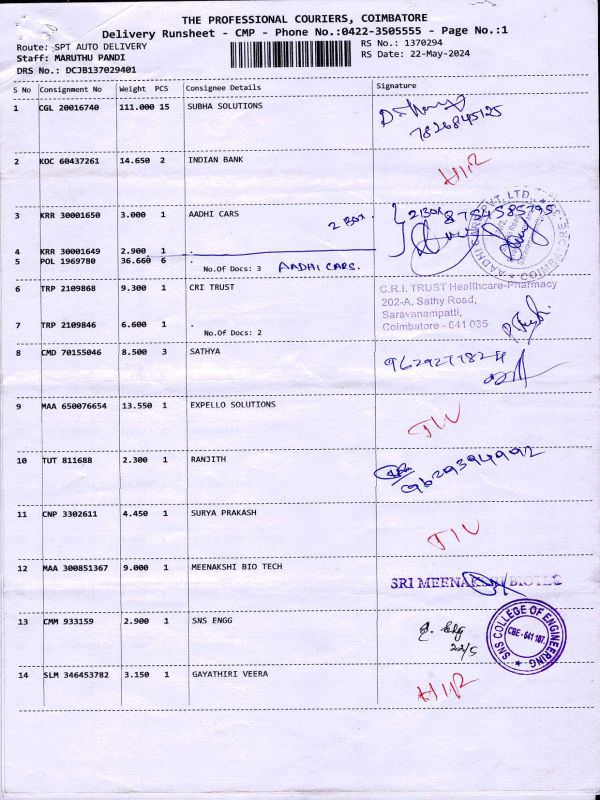 THE PROFESSIONAL COURIERS, COIMBATORE
Delivery Runsheet - CMP - Phone No.:0422-3505555 - Page No.:1
Route: SPT AUTO DELIVERY
RS No.: 1370294
Staff: MARUTHU PANDI
RS Date: 22-May-2024
DRS No.: DCJB137029401
S No Consignment No Weight PCS Consignee Details Signature
1 CGL 20016740 111.000 15 SUBHA SOLUTIONS
7826845125
2 KOC 60437261 14.650 2 INDIAN BANK
3 KRR 30001650 3.000 1 AADHI CARS 2 BOX. 2 BOX 8754585795
4 KRR 30001649 2.900 1 .
5 POL 1969780 36.660 6 .
No.Of Docs: 3 AADHI CARS.
6 TRP 2109868 9.300 1 CRI TRUST
C.R.I. TRUST Healthcare-Pharmacy
202-A, Sathy Road,
Saravanampatti,
Coimbatore - 641 035
7 TRP 2109846 6.600 1 .
No.Of Docs: 2
8 CMD 70155046 8.500 3 SATHYA
9 MAA 650076654 13.550 1 EXPELLO SOLUTIONS
10 TUT 811688 2.300 1 RANJITH
9629394992
11 CNP 3302611 4.450 1 SURYA PRAKASH
12 MAA 300851367 9.000 1 MEENAKSHI BIO TECH
SRI MEENAKSHI BIOTEC
13 CMM 933159 2.900 1 SNS ENGG
22/5
SNS COLLEGE OF ENGINEERING
CBE - 641 107.
14 SLM 346453782 3.150 1 GAYATHIRI VEERA